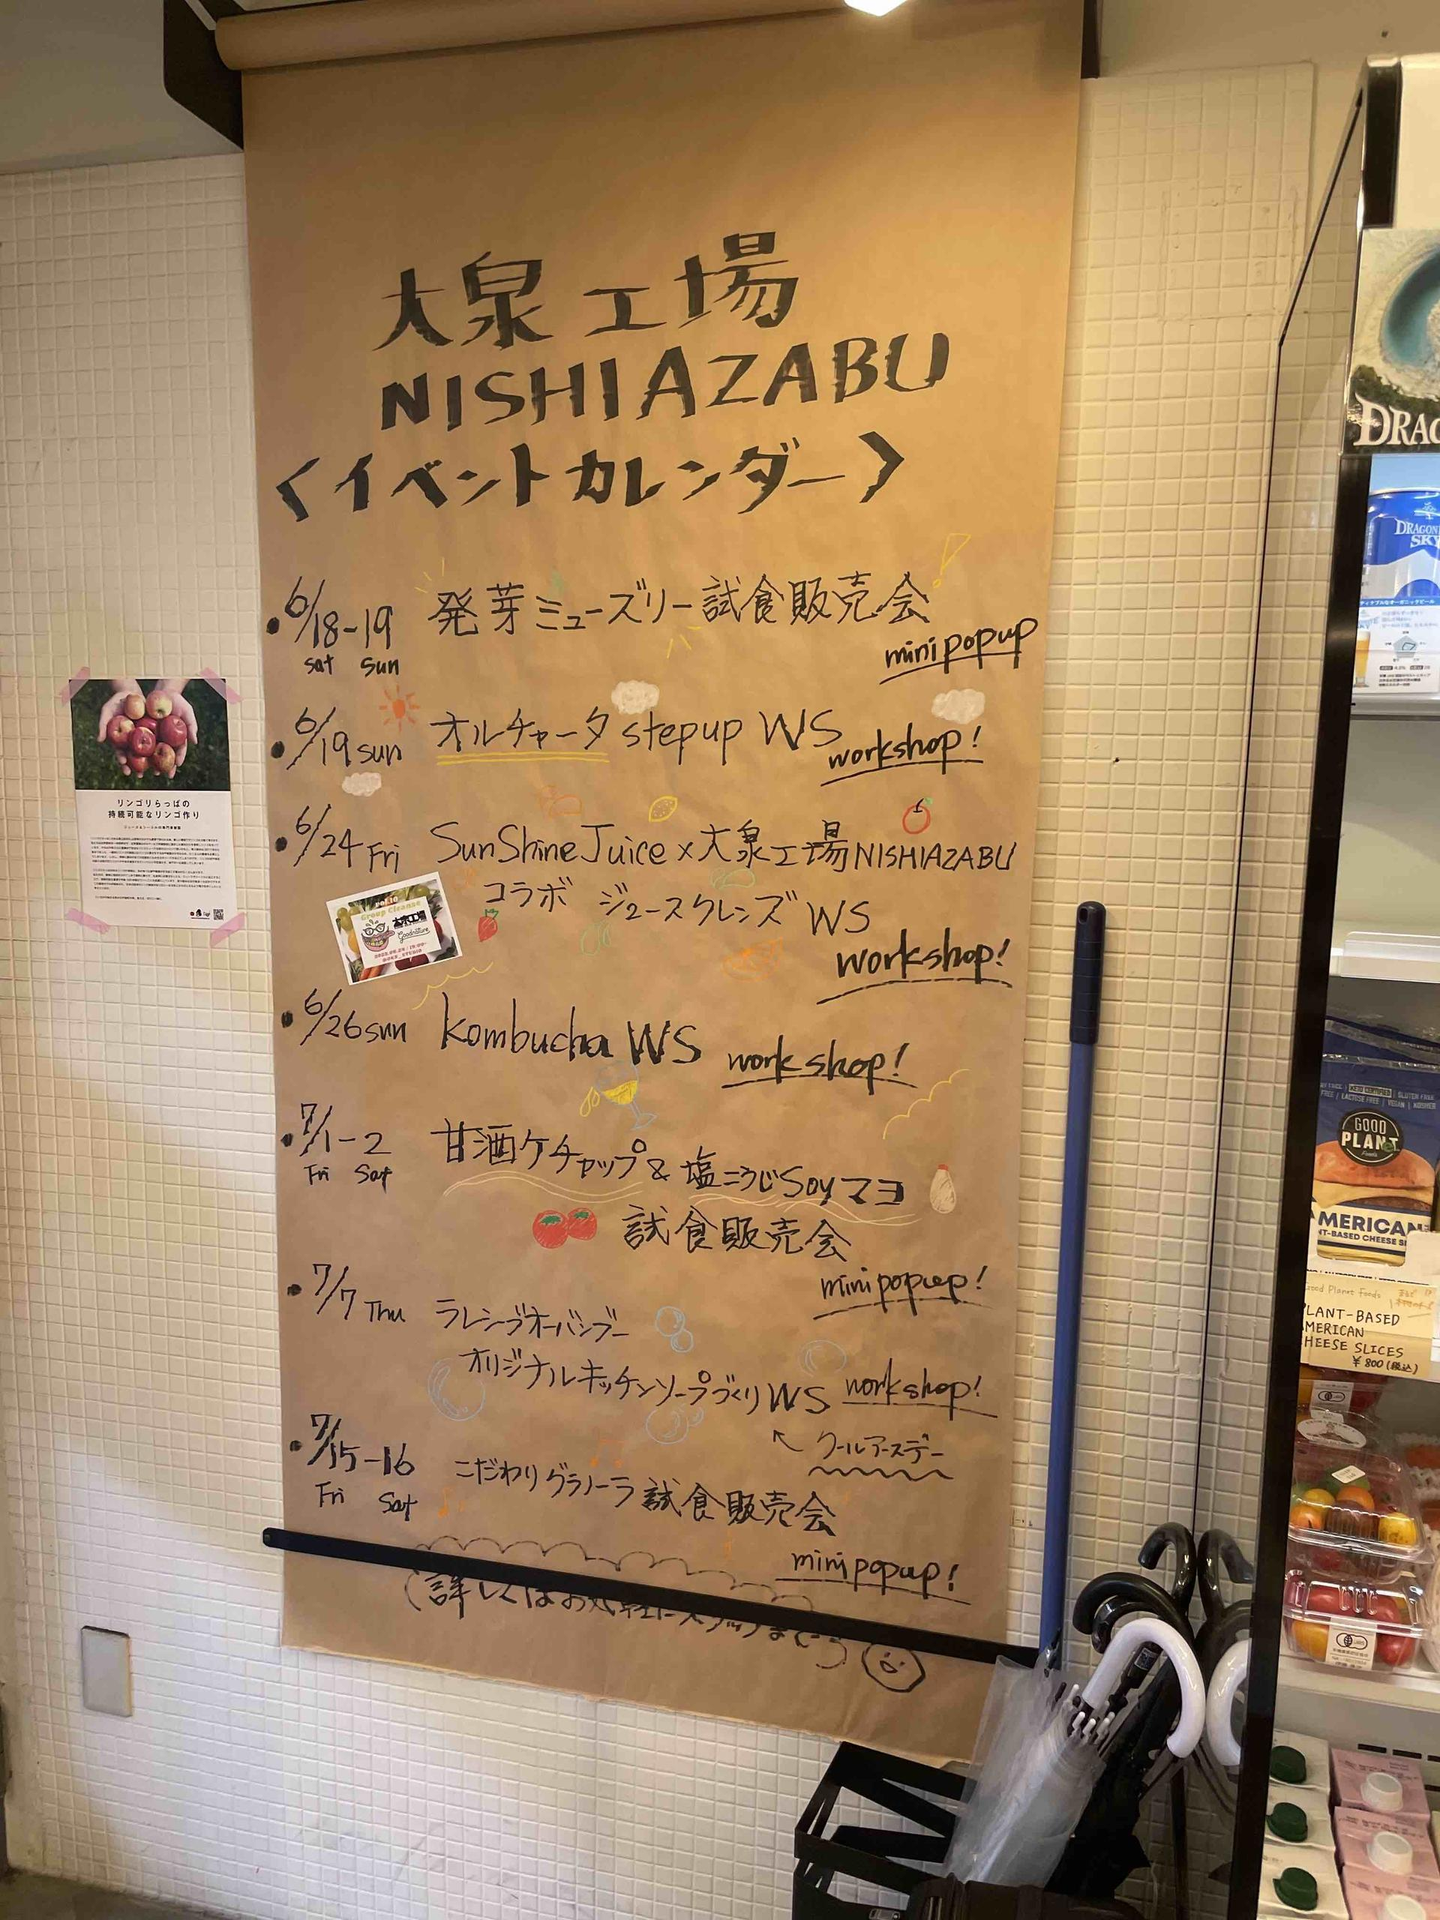 大泉工場
NISHIAZABU
〈イベントカレンダー〉
・6/18-19 発芽ミューズリー試食販売会!
sat sun
mini popup
・6/19 sun オルチャータ stepup WS
workshop!
・6/24 Fri SunShine Juice×大泉工場NISHIAZABU
コラボ ジュースクレンズ WS
workshop!
Group Cleanse
大泉工場
Goodnature
・6/26 sun kombucha WS workshop!
・7/1-2 甘酒ケチャップ&塩こうじSoyマヨ
Fri Sat
試食販売会
mini popup!
・7/7 Thu ラレシーブオーバシブー
オリジナルキッチンソープづくりWS workshop!
↖クールアースデー
・7/15-16 こだわりグラノーラ試食販売会
Fri Sat
mini popup!
(詳しくはお気軽にスタッフまで
リンゴリらっぱの
持続可能なリンゴ作り
DRAGON
SKY
GOOD
PLANeT
Foods
GLUTEN FREE
LACTOSE FREE | VEGAN | KOSHER
MERICAN
NT-BASED CHEESE
Good Planet Foods
PLANT-BASED
AMERICAN
CHEESE SLICES
¥800(税込)